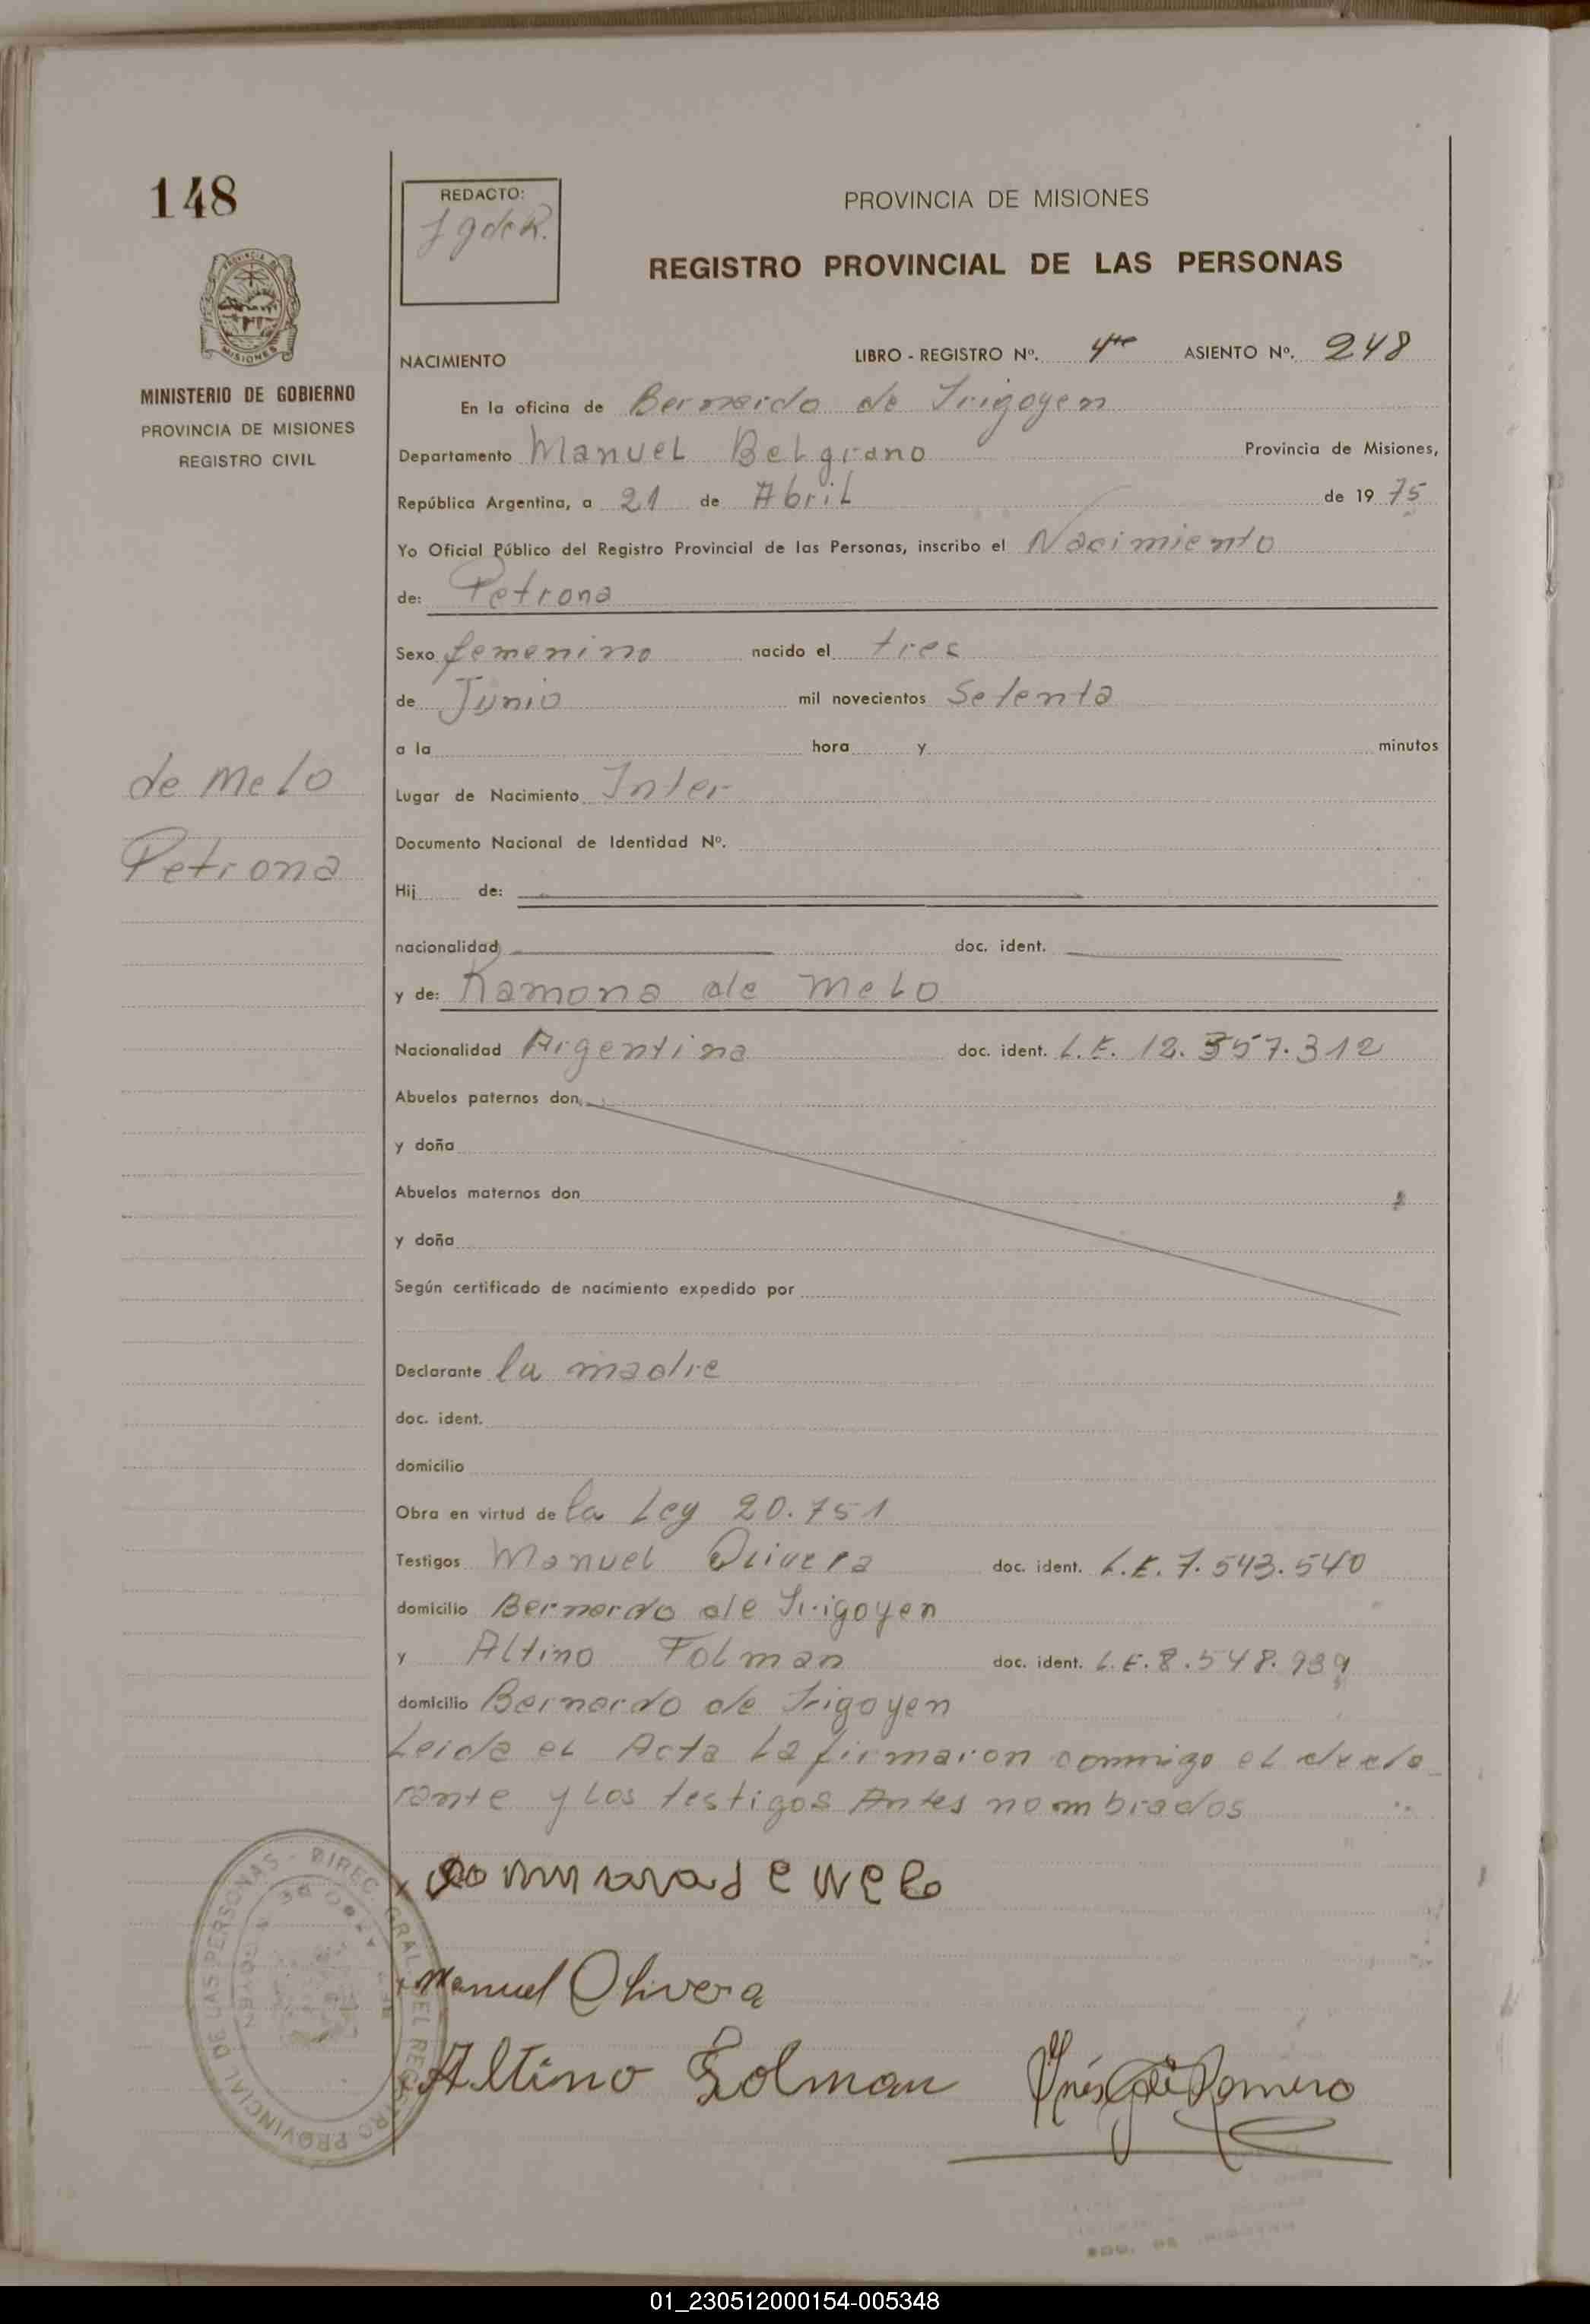 148
REDACTO:
PROVINCIA DE MISIONES
REGISTRO PROVINCIAL DE LAS PERSONAS
MISIONES
MINISTERIO DE GOBIERNO
PROVINCIA DE MISIONES
REGISTRO CIVIL
NACIMIENTO LIBRO - REGISTRO Nº. 4to ASIENTO Nº. 248
En la oficina de Bernardo de Irigoyen
Departamento Manuel Belgrano Provincia de Misiones,
República Argentina, a 21 de Abril de 19 75
Yo Oficial Público del Registro Provincial de las Personas, inscribo el Nacimiento
de: Petrona
Sexo femenino nacido el tres
de Junio mil novecientos Setenta
a la hora y minutos
de Melo
Petrona
Lugar de Nacimiento Inter
Documento Nacional de Identidad Nº.
Hij de:
nacionalidad doc. ident.
y de: Ramona de Melo
Nacionalidad Argentina doc. ident. L.E. 12.357.312
Abuelos paternos don
y doña
Abuelos maternos don
y doña
Según certificado de nacimiento expedido por
Declarante la madre
doc. ident.
domicilio
Obra en virtud de la Ley 20.751
Testigos Manuel Olivera doc. ident. L.E. 7.543.540
domicilio Bernardo de Irigoyen
y Altino Folman doc. ident. L.E. 8.548.939
domicilio Bernardo de Irigoyen
Leida el Acta La firmaron conmigo el decla-
rante y Los testigos Antes nombrados
Manuel Olivera
Altino Folman
Inés G de Romero
DIREC. GRAL. DEL REGISTRO PROVINCIAL DE LAS PERSONAS
01_230512000154-005348